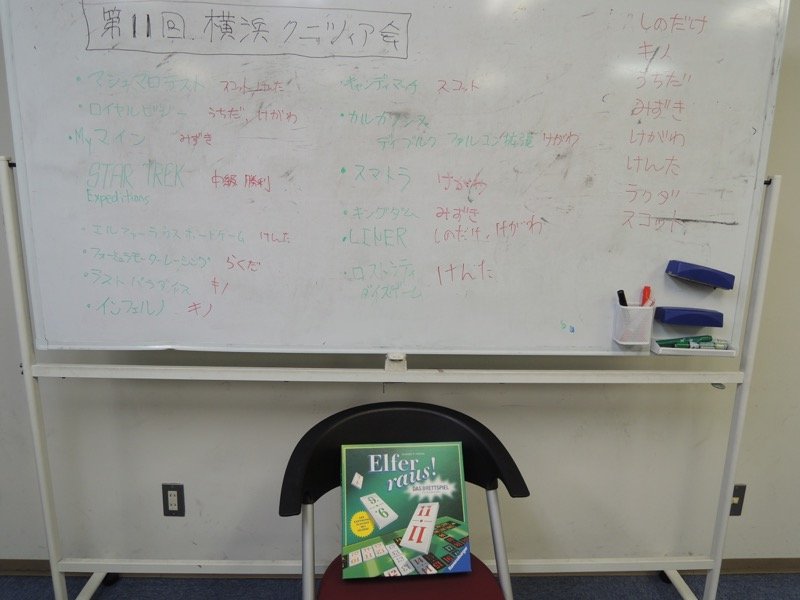 第11回 横浜 クニツィア会
・マシュマロテスト スコット、けんた
・ロイヤルビジー うちだ、けがわ
・Myマイン みずき
STAR TREK 中級 勝利
Expeditions
・エルファーラウスボードゲーム けんた
・フォーミュラモーターレーシング らくだ
・ラストパラダイス キノ
・インフェルノ キノ
・キャンディマッチ スコット
・カルカソンヌ
ディブルク ファルコン拡張 けがわ
・スマトラ けがわ
・キングダム みずき
・LINER しのだけ、けがわ
・ロストシティ けんた
ダイスゲーム
しのだけ
キノ
うちだ
みずき
けがわ
けんた
ラクダ
スコット
Elfer
raus!
DAS BRETTSPIEL
11
11
Ravensburger